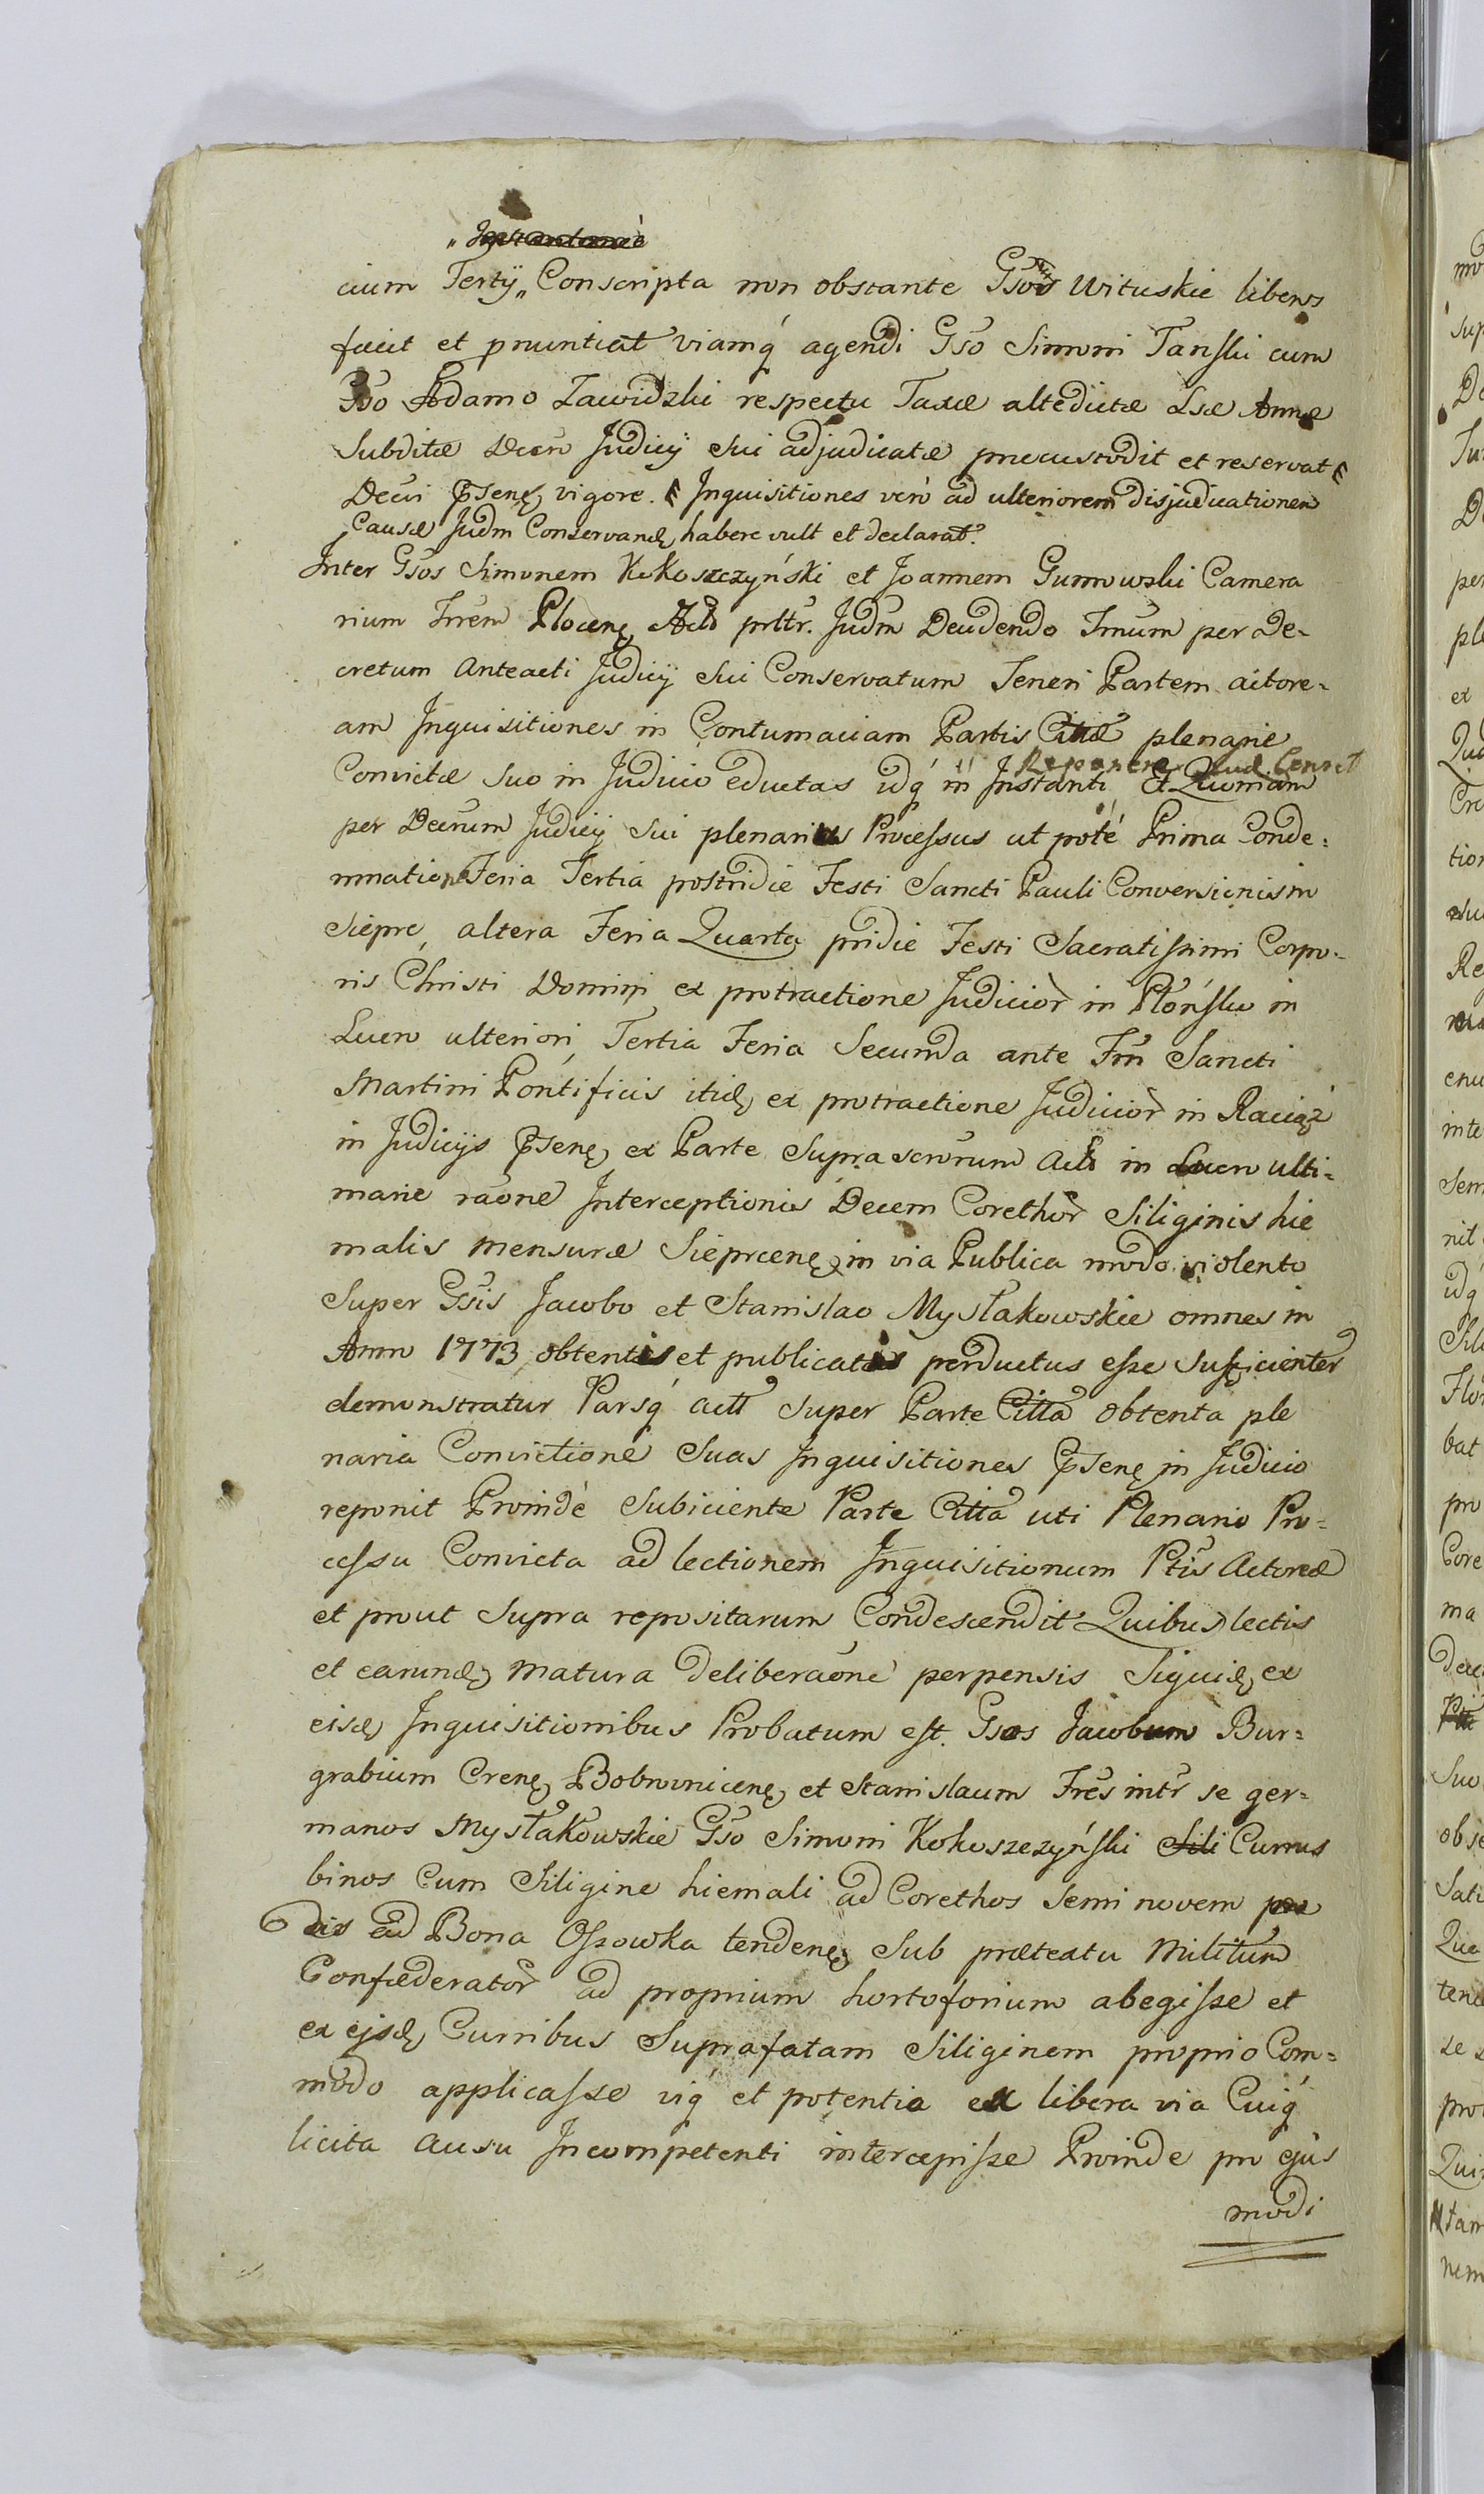 cium Tertij „ Conscripta non obstante Gsos Wituskie liberos
facit et pnuntiat viamq́ agendi Gso Simoni Tanski cum
Gso Adamo Zawidzki respectu Taxæ altedictæ Lsæ Annæ
Subditæ Decr̃ Judicij Sui adjudicatæ præcustodit et reservat
Decti Pr̃senę vigore. Inquisitiones verò ad ulteriorem disjudicationem
Causæ Judm Conservandę habere vult et declarat.
Inter Gsos Simonem Kokoszczyński et Joannem Gumowski Camera
rium Trrem Plocenę Acts prltr. Judm Decidendo Tmum per De-
cretum anteacti Judicij Sui Conservatum Teneri Partem actore-
am Inquisitiones in Contumaciam Partis Cittæ plenarie
Reponere Jud. Censet
Convictæ suo in Judicio eductas idq́ in Instanti Et Quoniam
per Decrum Judicij Sui plenarius Processus ut potè Prima Conde:
mnatione Feria Tertia postridie Festi Sancti Pauli Conversionis in
Siepre, altera Feria Quarta pridie Festi Sacratissimi Corpo-
ris Christi Domini ex protractione Judicior in Płońsku in
Lucro ulteriori, Tertia Feria Secunda ante Fm Sancti
Martini Pontificis itidę ex protractione Judicior in Raciąż
in Judicijs Pr̃senę ex Parte Suprascrorum Acts in Lucro ulti-
marie raõne Interceptionis Decem Corethor Siliginis hie
malis mensuræ Sieprcenę in via Publica modo violento
Super Gsis Jacobo et Stanislao Mystakowskie omnes in
Anno 1773 obtentis et publicatis perductus esse sufficienter
demonstratur Parsq́ actt super Parte Citta obtenta ple
naria Convictione suas Inquisitiones Pr̃senę in Judicio
reponit Proindè Subiciente Parte Citta uti Plenario Pro-
cessu Convicta ad lectionem Inquisitionum Ptis Actoreæ
et prout supra repositarum Condescendit Quibus lectis
et earundę matura deliberaõne perpensis Siquidę ex
eisdę Inquisitionibus Probatum est. Gsos Jacobum Bur-
grabium Crenę Bobrownicenę et Stanislaum Fres intr se ger-
manos Mystakowskie Gso Simoni Kokoszczyński Currus
binos cum Siligine hiemali ad Corethos semi novem
ad Bona Ossowka tendenę sub prætextu Militum
Confæderator ad proprium hortoforium abegisse et
ex ejsdę Curribus Suprafatam Siliginem proprio Com-
modo applicasse viq́ et potentia ex libera via Cuiq́
licita ausu Incompetenti intercepisse Proinde pro ejus
modi